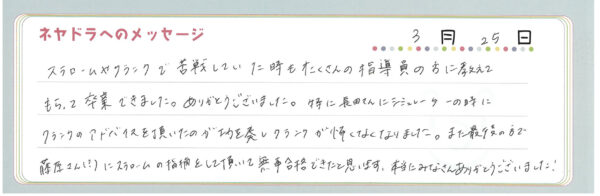 ネヤドラへのメッセージ
3月25日
スラロームやクランクで苦戦していた時もたくさんの指導員の方に教えて
もらって卒業できました。ありがとうございました。特に長田さんにシミュレーターの時に
クランクのアドバイスを頂いたのが功を奏しクランクが怖くなくなりました。また最後の方で
藤原さん(?)にスラロームの指摘をして頂いて無事合格できたと思います。本当にみなさんありがとうございました!